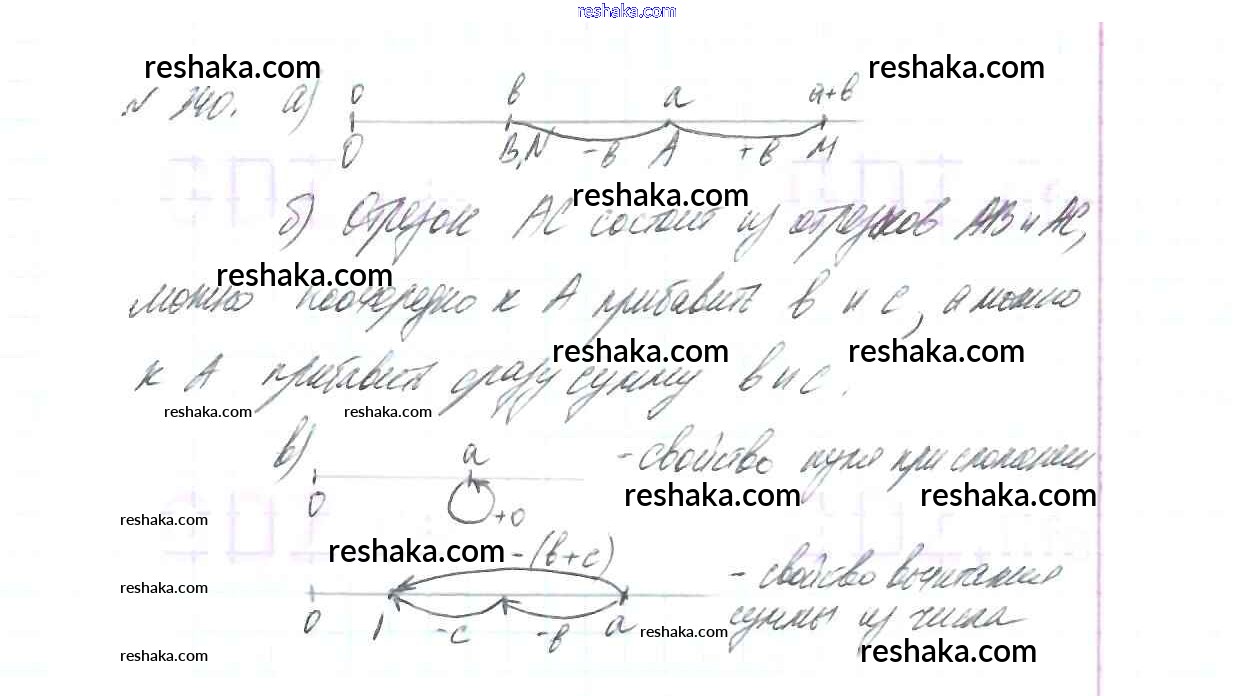 reshaka.com
reshaka.com reshaka.com
№ 340. а) 0 в а а+в
0 B,N -в A +в M
reshaka.com
б) Отрезок АС состоит из отрезков АВ и АС,
reshaka.com
можно поочередно к А прибавить в и с, а можно
reshaka.com reshaka.com
к А прибавить сразу сумму в и с.
reshaka.com reshaka.com
в) а - свойство нуля при сложении
0 +0
reshaka.com reshaka.com
reshaka.com
reshaka.com -(в+с)
- свойство вычитания
reshaka.com
0 1 -с -в а reshaka.com суммы из числа
reshaka.com reshaka.com